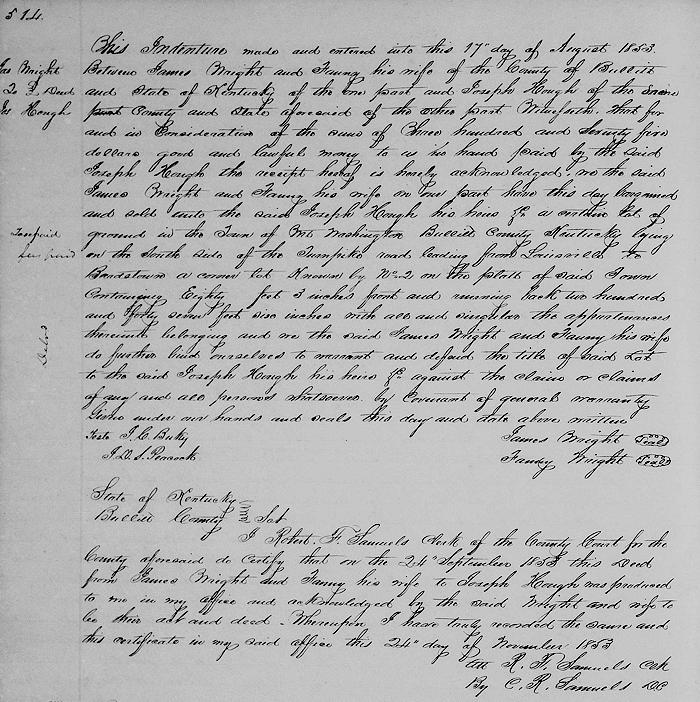 514.
This Indenture made and entered into this 17" day of August 1853.
Jas Wright
To } Deed
Jos Hough
Between James Wright and Fanny his wife of the County of Bullitt
and State of Kentucky of the one part and Joseph Hough of the same
part County and State aforesaid of the other part Witnesseth. That for
and in Consideration of the sum of Three hundred and seventy five
dollars good and lawful money to us in hand paid by the said
Joseph Hough the receipt hereof is hereby acknowledged, we the said
James Wright and Fanny his wife on our part have this day bargained
and sold unto the said Joseph Hough his heirs &c a certain lot of
Tax paid
fee paid
ground in the Town of Mt Washington Bullitt County Kentucky lying
on the South side of the Turnpike road leading from Louisville to
Bardstown a corner lot Known by No 2 on the platt of said Town
Containing Eighty feet 3 inches front and running back two hundred
and fforty seven feet six inches with all and singular the appurtenances
thereunto belonging and we the said James Wright and Fanny his wife
do further bind ourselves to warrant and defend the title of said Lot
to the said Joseph Hough his heirs &c against the claim or claims
of any and all persons whatsoever by Covenant of general warranty
Given under our hands and seals this day and date above written
Teste J. C. Bukey James Wright Seal
J. D. S. Peacock Fanny Wright Seal
State of Kentucky
Bullitt County } Sct
I Robert. F. Samuels Clerk of the County Court for the
County aforesaid do Certify that on the 24" September 1853 this Deed
from James Wright and Fanny his wife to Joseph Hough was produced
to me in my office and acknowledged by the said Wright and wife to
be their act and deed. Whereupon I have truly recorded the same and
this certificate in my said office this 24" day of November 1853
Att R. F. Samuels Clk
By C. R. Samuels DC